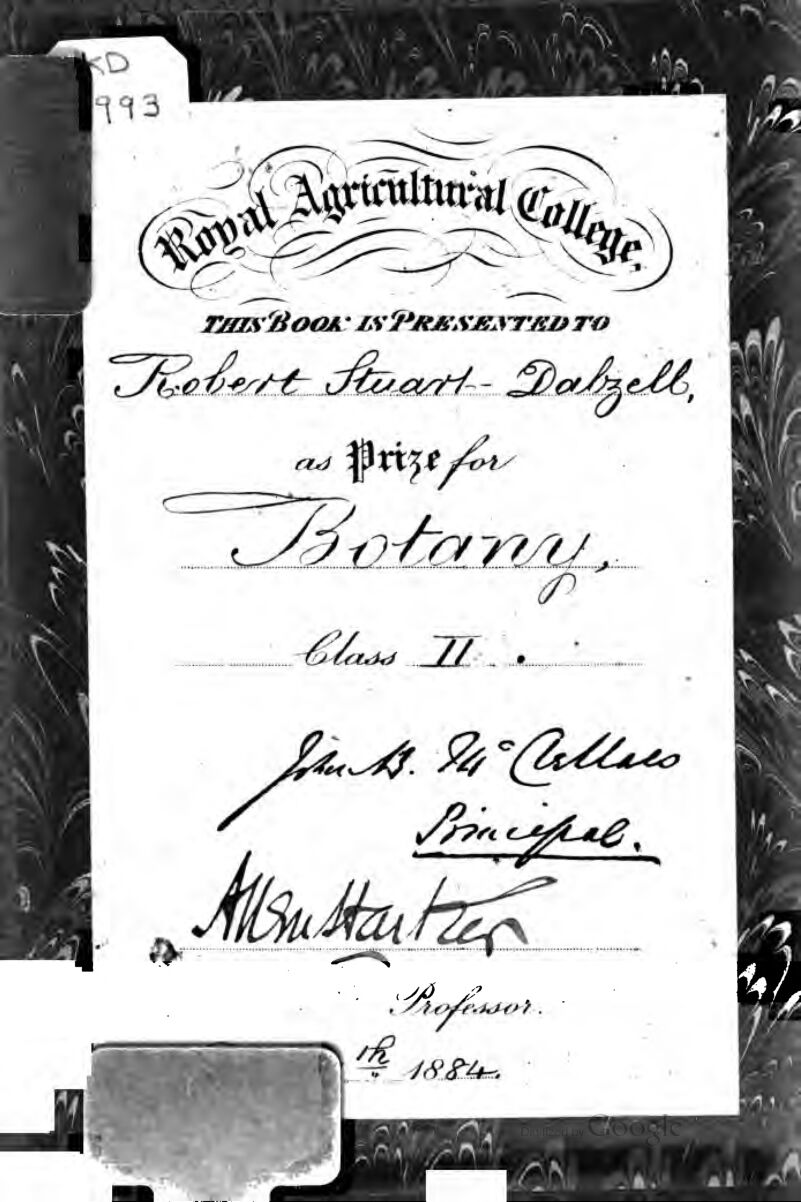 KD
993
Royal Agricultural College,
THIS BOOK IS PRESENTED TO
Robert Stuart-Dalzell,
as Prize for
Botany,
Class II.
John B. McClellan
Principal.
Allen Harker
Professor.
th 1884.
Digitized by Google